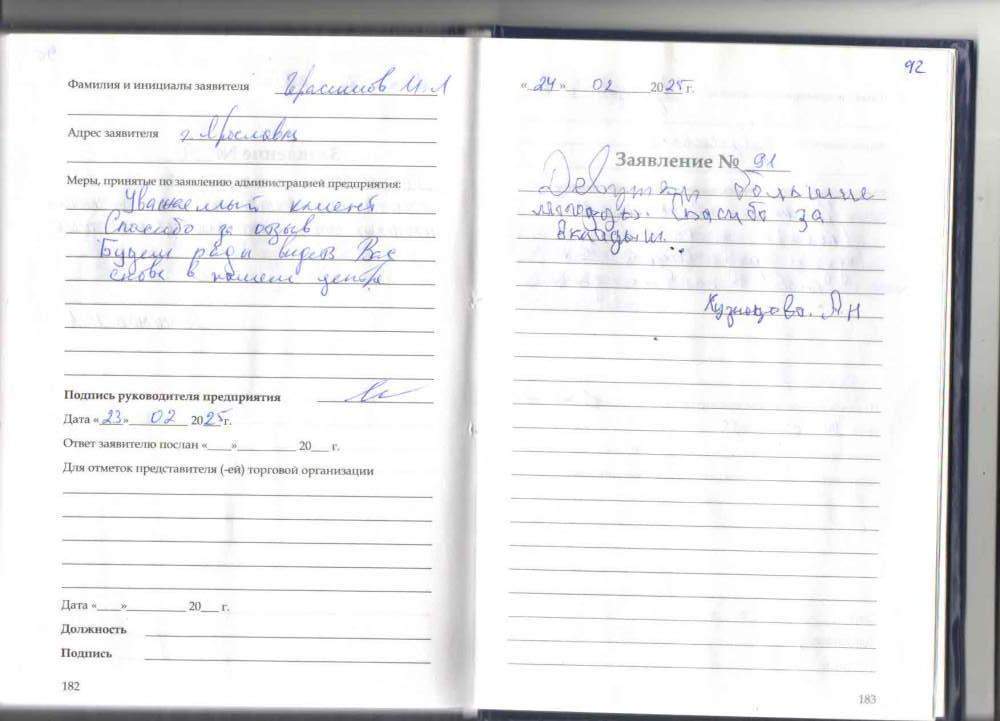 Фамилия и инициалы заявителя Герасимов И. Л
Адрес заявителя г. Ярославль
Меры, принятые по заявлению администрацией предприятия:
Уважаемый клиент
Спасибо за отзыв
Будем рады видеть Вас
снова в нашем центре
Подпись руководителя предприятия
Дата «23» 02 2025г.
Ответ заявителю послан «___»_________ 20___ г.
Для отметок представителя (-ей) торговой организации
Дата «____»__________ 20___ г.
Должность
Подпись
182
92
«24» 02 2025г.
Заявление № 91
Девушки большие
молодцы. Спасибо за
Кузнецова. А Н
183